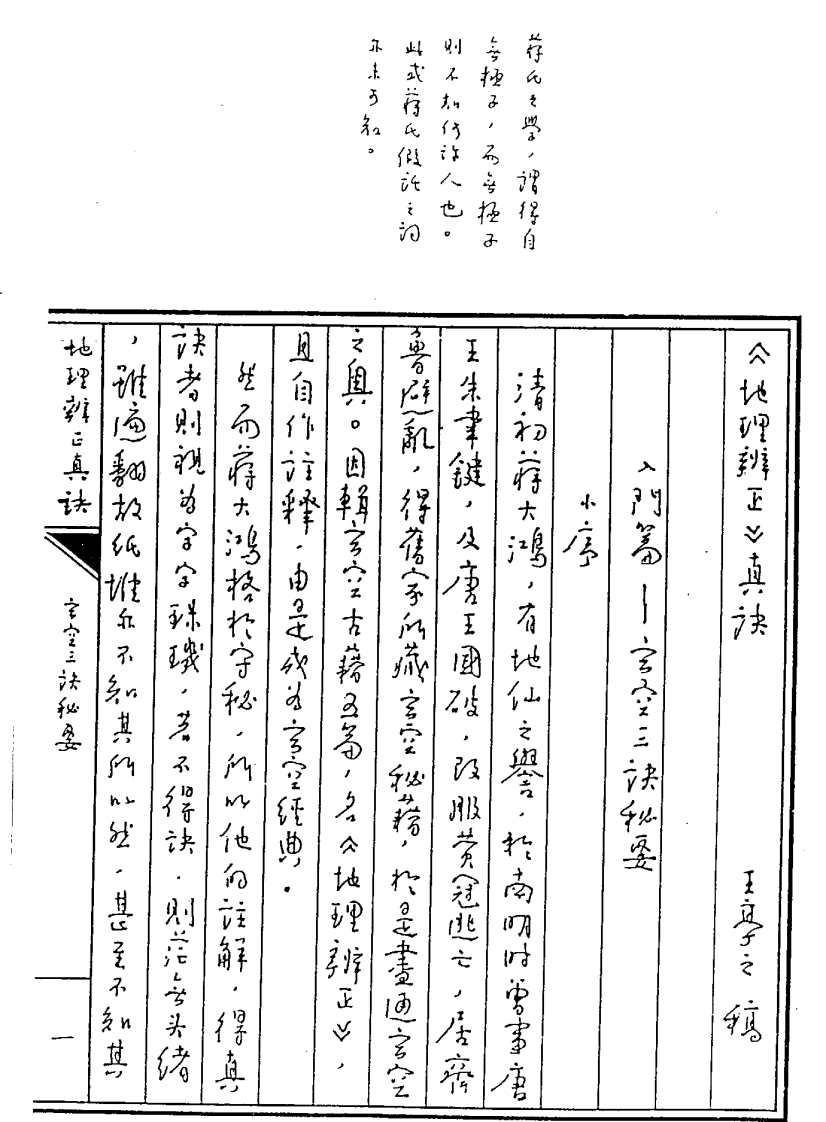 蔣氏之學，謂得自
無極子，而無極子
則不知何許人也。
此或蔣氏假託之詞
亦未可知。
《地理辨正》真訣
王亭之 稿
入門篇——玄空三訣秘要
小序
清初蔣大鴻，有地仙之譽，於南明時曾事唐
王朱聿鍵，及唐王國破，改服黃冠逃亡，居齊
魯避亂，得舊家所藏玄空秘藉，於是盡通玄空
之奧。因輯玄空古藉五篇，名《地理辨正》，
且自作註釋，由是成為玄空經典。
然而蔣大鴻格於守秘，所以他的註解，得真
訣者則視為字字珠璣，若不得訣，則茫無头緒
，雖遍翻故紙堆亦不知其所以然，甚至不知其
地理辨正真訣
玄空三訣秘要
一